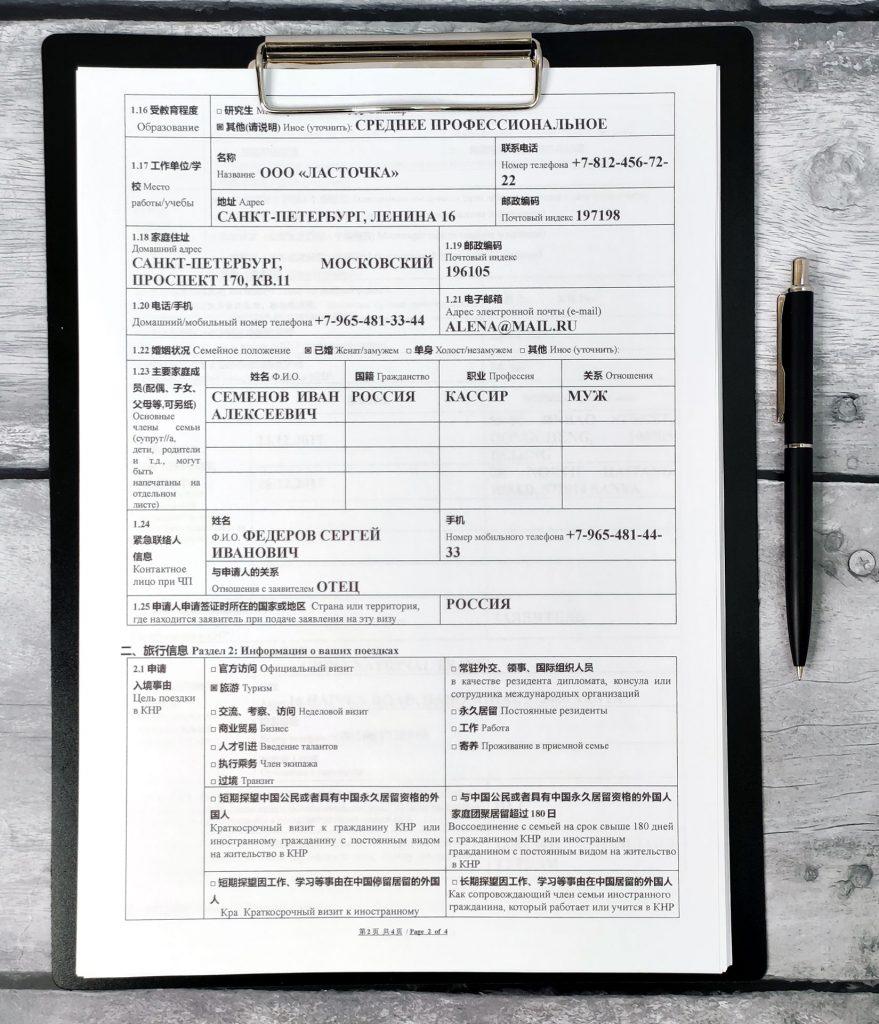 1.16 受教育程度
Образование
□ 研究生
▣ 其他(请说明) Иное (уточнить): СРЕДНЕЕ ПРОФЕССИОНАЛЬНОЕ
1.17 工作单位/学
校 Место
работы/учебы
名称
Название ООО «ЛАСТОЧКА»
联系电话
Номер телефона +7-812-456-72-
22
地址 Адрес
САНКТ-ПЕТЕРБУРГ, ЛЕНИНА 16
邮政编码
Почтовый индекс 197198
1.18 家庭住址
Домашний адрес
САНКТ-ПЕТЕРБУРГ, МОСКОВСКИЙ
ПРОСПЕКТ 170, КВ.11
1.19 邮政编码
Почтовый индекс
196105
1.20 电话/手机
Домашний/мобильный номер телефона +7-965-481-33-44
1.21 电子邮箱
Адрес электронной почты (e-mail)
ALENA@MAIL.RU
1.22 婚姻状况 Семейное положение ▣ 已婚 Женат/замужем □ 单身 Холост/незамужем □ 其他 Иное (уточнить):
1.23 主要家庭成
员(配偶、子女、
父母等,可另纸)
Основные
члены семьи
(супруг//а,
дети, родители
и т.д., могут
быть
напечатаны на
отдельном
листе)
姓名 Ф.И.О. 国籍 Гражданство 职业 Профессия 关系 Отношения
СЕМЕНОВ ИВАН
АЛЕКСЕЕВИЧ
РОССИЯ
КАССИР
МУЖ
1.24
紧急联络人
信息
Контактное
лицо при ЧП
姓名
Ф.И.О. ФЕДЕРОВ СЕРГЕЙ
ИВАНОВИЧ
手机
Номер мобильного телефона +7-965-481-44-
33
与申请人的关系
Отношения с заявителем ОТЕЦ
1.25 申请人申请签证时所在的国家或地区 Страна или территория,
где находится заявитель при подаче заявления на эту визу
РОССИЯ
二、旅行信息 Раздел 2: Информация о ваших поездках
2.1 申请
入境事由
Цель поездки
в КНР
□ 官方访问 Официальный визит
▣ 旅游 Туризм
□ 交流、考察、访问 Неделовой визит
□ 商业贸易 Бизнес
□ 人才引进 Введение талантов
□ 执行乘务 Член экипажа
□ 过境 Транзит
□ 常驻外交、领事、国际组织人员
в качестве резидента дипломата, консула или
сотрудника международных организаций
□ 永久居留 Постоянные резиденты
□ 工作 Работа
□ 寄养 Проживание в приемной семье
□ 短期探望中国公民或者具有中国永久居留资格的外
国人
Краткосрочный визит к гражданину КНР или
иностранному гражданину с постоянным видом
на жительство в КНР
□ 与中国公民或者具有中国永久居留资格的外国人
家庭团聚居留超过 180 日
Воссоединение с семьей на срок свыше 180 дней
с гражданином КНР или иностранным
гражданином с постоянным видом на жительство
в КНР
□ 短期探望因工作、学习等事由在中国停留居留的外国
人
Кра Краткосрочный визит к иностранному
□ 长期探望因工作、学习等事由在中国居留的外国人
Как сопровождающий член семьи иностранного
гражданина, который работает или учится в КНР
第 2 页 共 4 页 / Page 2 of 4